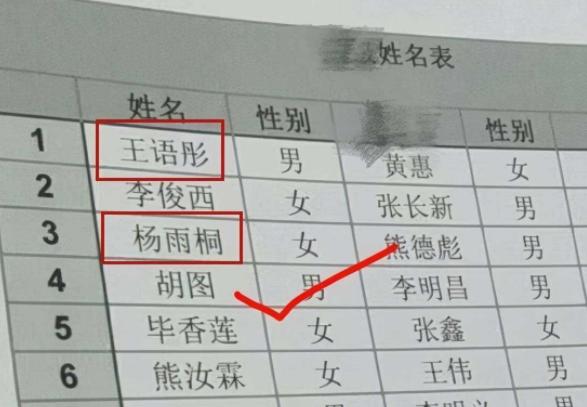 姓名表
姓名 性别 性别
1 王语彤 男 黄惠 女
2 李俊西 女 张长新 男
3 杨雨桐 女 熊德彪 男
4 胡图 男 李明昌 男
5 毕香莲 女 张鑫 女
6 熊汝霖 女 王伟 男